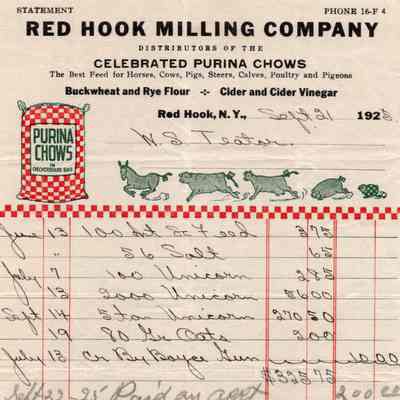 STATEMENT PHONE 16-F 4
RED HOOK MILLING COMPANY
DISTRIBUTORS OF THE
CELEBRATED PURINA CHOWS
The Best Feed for Horses, Cows, Pigs, Steers, Calves, Poultry and Pigeons
Buckwheat and Rye Flour -:- Cider and Cider Vinegar
Red Hook, N.Y., Sept 21 1925
W. S. Teator.
PURINA
CHOWS
IN
CHECKERBOARD BAGS
June 13 100 Feed 375
" 56 Salt 65
July 7 100 Unicorn 285
" 13 2000 Unicorn 5600
Sept 14 5 ton Unicorn 27050
19 80 Gr Oats 200
July 13 Cr By Boyce Gun 1000
$32575
Sept 22 25 Paid on acct 20000